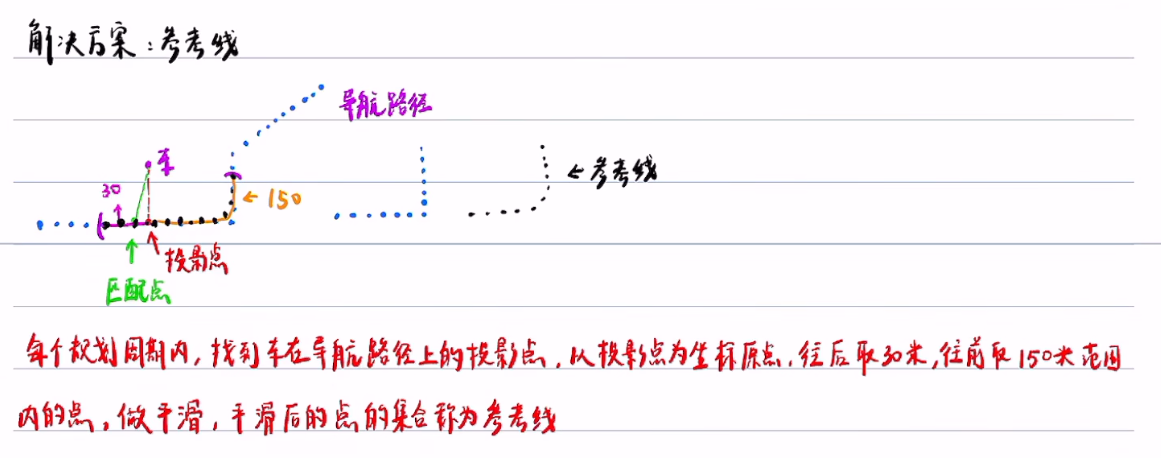 解决方案：参考线
导航路径
车
30
←150
←参考线
投影点
匹配点
每个规划周期内，找到车在导航路径上的投影点，以投影点为坐标原点，往后取30米，往前取150米范围
内的点，做平滑，平滑后的点的集合称为参考线